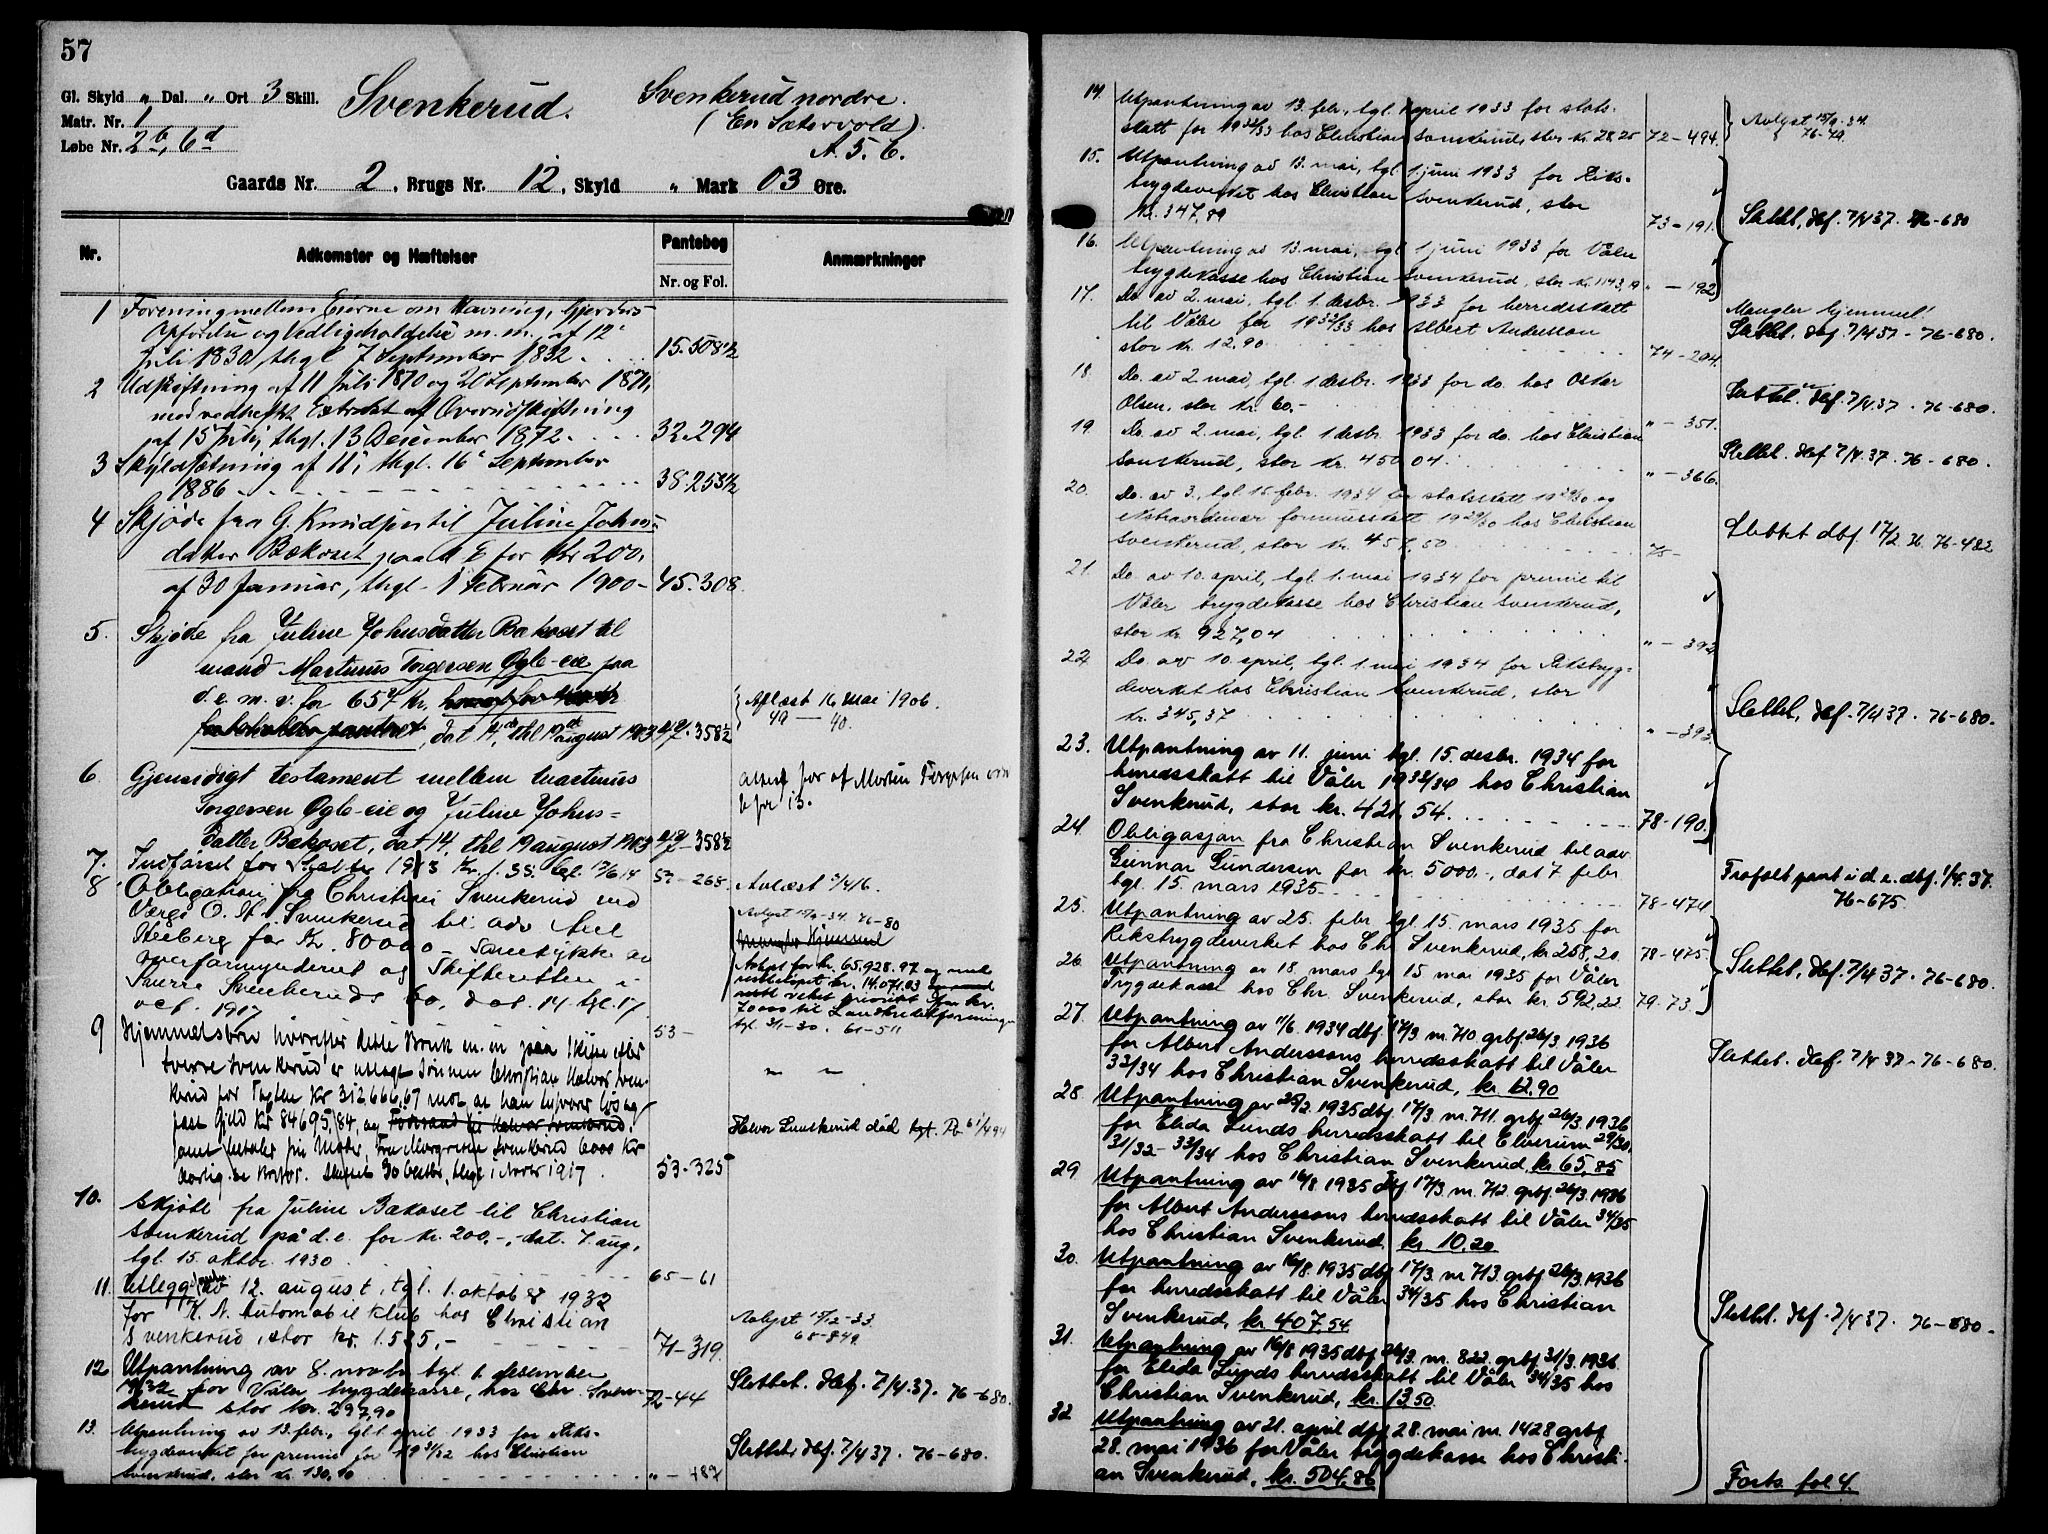 57
Gl. Skyld " Dal. " Ort 3 Skill.
Matr. Nr. 1
Løbe Nr. 2b, 6d
Svenkerud.
Svenkerud nordre.
(En Sætervold).
A. 5. 6.
Gaards Nr. 2, Brugs Nr. 12, Skyld " Mark 03 Øre.
Nr.
Adkomster og Hæftelser
Pantebog
Nr. og Fol.
Anmærkninger
1 Forening mellem Eierne om Havning, Gjerders
Opførelse og Vedligeholdelse m.m. af 12'
Juli 1830, thgl. 7 September 1832. 15.508½
2 Udskiftning af 11 Juli 1870 og 20 September 1871,
med vedheftet Extrakt af Overudskiftning
af 15 Juli, thgl. 13 December 1872. 32.294
3 Skyldsætning af 11', thgl. 16' September
1886 38.253½
4 Skjøde fra G. Knudsen til Juline Johns-
datter Bækoset paa d. E. for Kr 200,
af 30 Januar, thgl. 1 Februar 1900 - 45.308.
5. Skjøde fra Juline Johnsdatter Bækoset til
mand Martinus Torgersen Øgle-eie paa
d. e. m. v. for 657 kr.
dat 14de, thl 19de august 1903, 47.358½
} Aflæst 16 Mai 1906.
49 — 40.
6. Gjensidigt testament mellem Martinus
Torgersen Øgle-eie og Juline Johns-
datter Bækoset, dat 14. thl 19 august 1903 47-358½
7. Indførsel for Skatter 1913 Kr. 1.38. tgl. 17/6 14 52-268
Avlæst 3/4 16.
8 Obligation fra Christian Svenkerud ved
Verge O. H. Svenkerud til adv Axel
Heiberg for Kr. 80000 - Samtykke av
overformynderiet og Skifteretten i
Sverre Svenkeruds bo, dat. 14. tgl. 17.
oct. 1917 53-
Avlyst 15/9-34. 76-80
Mangler Hjemmel
Avlyst for kr. 65.928.97 og med
restbeløpet kr. 14.071.03
veket prioritet for kr.
70000 til Landkreditforeningen
tgl. 31-30. 61-511
9 Hjemmelsbrev hvorefter dette Bruk m. m. paa Skifte efter
Sverre Svenkerud er utlagt Sønnen Christian Halvor Sven-
kerud for Taxten Kr 312,666,67 mot at han
paat Gjeld Kr 84695,84, og
samt betaler sin Moder, Fru Margrethe Svenkerud 6000 Kr
aarlig. Skiftet 30 Oktbr, thgl 1 Novbr 1917. 53-325
" "
Halvor Svenkerud død tgt. Pb 61/494
10. Skjøte fra Juline Bækoset til Christian
Svenkerud på d. e. for kr. 200,-, dat. 7. aug,
tgl. 15. oktbr. 1930 65-61
11. Utlegg av 12. august, tgl. 1. oktober 1932
for K. N. Automobil Klub hos Christian
Svenkerud, stor kr. 1.535,- 71-319.
Avlyst 15/12-33.
68-849.
12 Utpantning av 8. novbr. tgl. 1. desember
1932 for Våler trygdekasse, hos Chr. Sven-
kerud stor kr. 297,90 72-44
Slettet. dbf. 7/4 37. 76-680.
13. Utpantning av 13. febr, tgl. 1 april 1933 for Riks-
trygdeverket for premie for 1931/32 hos Christian
Svenkerud, stor kr. 130,10 " - 487
Slettet dbf 7/4 37. 76-680.
14. Utpantning av 13. febr., tgl. 1 april 1933 for stats-
skatt for 1932/33 hos Christian Svenkerud, stor kr. 28.25 72-494.
} Avlyst 15/9-34.
76-79.
15. Utpantning av 13. mai, tgl. 1. juni 1933 for Riks-
trygdeverket hos Christian Svenkerud, stor
kr. 347,89 73-191.
Slettet, dbf. 7/4 37. 76-680
16. Utpantning av 13. mai, tgl. 1 juni 1933 for Våler
trygdekasse hos Christian Svenkerud, stor kr. 1143,19 " - 192
17. Do. av 2. mai, tgl. 1. desbr. 1933 for herredsskatt
til Våler for 1932/33 hos Albert Andersson
stor kr. 12,90 74-294.
Mangler hjemmel!
Slettet, dbf. 7/4 37 - 76-680.
18. Do. av 2 mai, tgl. 1 desbr. 1933 for do. hos Oskar
Olsen, stor kr. 60.- " - 351.
Slettet. dbf. 7/4 37. 76-680.
19. Do. av 2. mai, tgl. 1 desbr. 1933 for do. hos Christian
Svenkerud, stor kr. 450,04. " - 366.
Slettet. dbf 7/4. 37. 76-680.
20. Do. av 3., tgl. 15. febr. 1934 for statsskatt 1929/30 og
ekstraordinær formuesskatt 1929/30 hos Christian
Svenkerud, stor kr. 457,50 75-
Slettet dbf. 17/2 36. 76-482
21. Do. av 10. april, tgl. 1. mai 1934 for premie til
Våler trygdekasse hos Christian Svenkerud,
stor kr. 927,04 " - 392
22. Do. av 10. april, tgl. 1. mai 1934 for Rikstryg-
deverket hos Christian Svenkerud, stor
kr. 345,37 " - 393.
Slettet, dbf. 7/4 37. 76-680.
23. Utpantning av 11. juni tgl. 15. desbr. 1934 for
herredsskatt til Våler 1933/34 hos Christian
Svenkerud, stor kr. 421,54. 78-190.
24. Obligasjon fra Christian Svenkerud til adv.
Gunnar Gundersen for kr. 5000.-, dat 7 febr
tgl. 15. mars 1935. 78-474.
Frafalt pant i d. e. dbf. 1/4. 37.
76-675
25. Utpantning av 25. febr. tgl. 15. mars 1935 for
Rikstrygdeverket hos Chr. Svenkerud, kr. 258,20. 78-475.
Slettet, dbf. 7/4 37. 76-680.
26. Utpantning av 18. mars tgl. 15 mai 1935 for Våler
Trygdekasse hos Chr. Svenkerud, stor kr. 592,22 79-73.
27. Utpantning av 11/6. 1934 dbf. 17/3. nr. 710. grbf. 26/3 1936
for Albert Anderssons herredsskatt til Våler
33/34 hos Christian Svenkerud, kr. 12,90
Slettet. dbf. 7/4 37. - 76-680.
28. Utpantning av 25/2. 1935 dbf. 17/3. nr. 711. grbf 26/3 1936
for Elida Lunds herredsskatt til Elverum 29/30,
31/32 - 33/34 hos Christian Svenkerud, kr. 65,85
29 Utpantning av 16/8. 1935 dbf. 17/3. nr. 712. grbf. 26/3. 1936
for Albert Anderssons herredsskatt til Våler 34/35
hos Christian Svenkerud, kr. 10,20
30. Utpantning av 16/8. 1935 dbf 17/3. nr 713. grbf. 26/3. 1936
for herredsskatt til Våler 34/35 hos Christian
Svenkerud, kr. 407,54
Slettet. dbf. 7/4 37. 76-680.
31. Utpantning av 16/8 1935 dbf 26/3. nr. 822. grbf 31/3. 1936
for Elida Lunds herredsskatt til Våler 34/35 hos
Christian Svenkerud, kr. 13,50
32 Utpantning av 21. april dbf 28. mai nr. 1428 grbf
28. mai 1936 for Våler trygdekasse hos Christi-
an Svenkerud, kr. 504,86
Forts. fol 4.